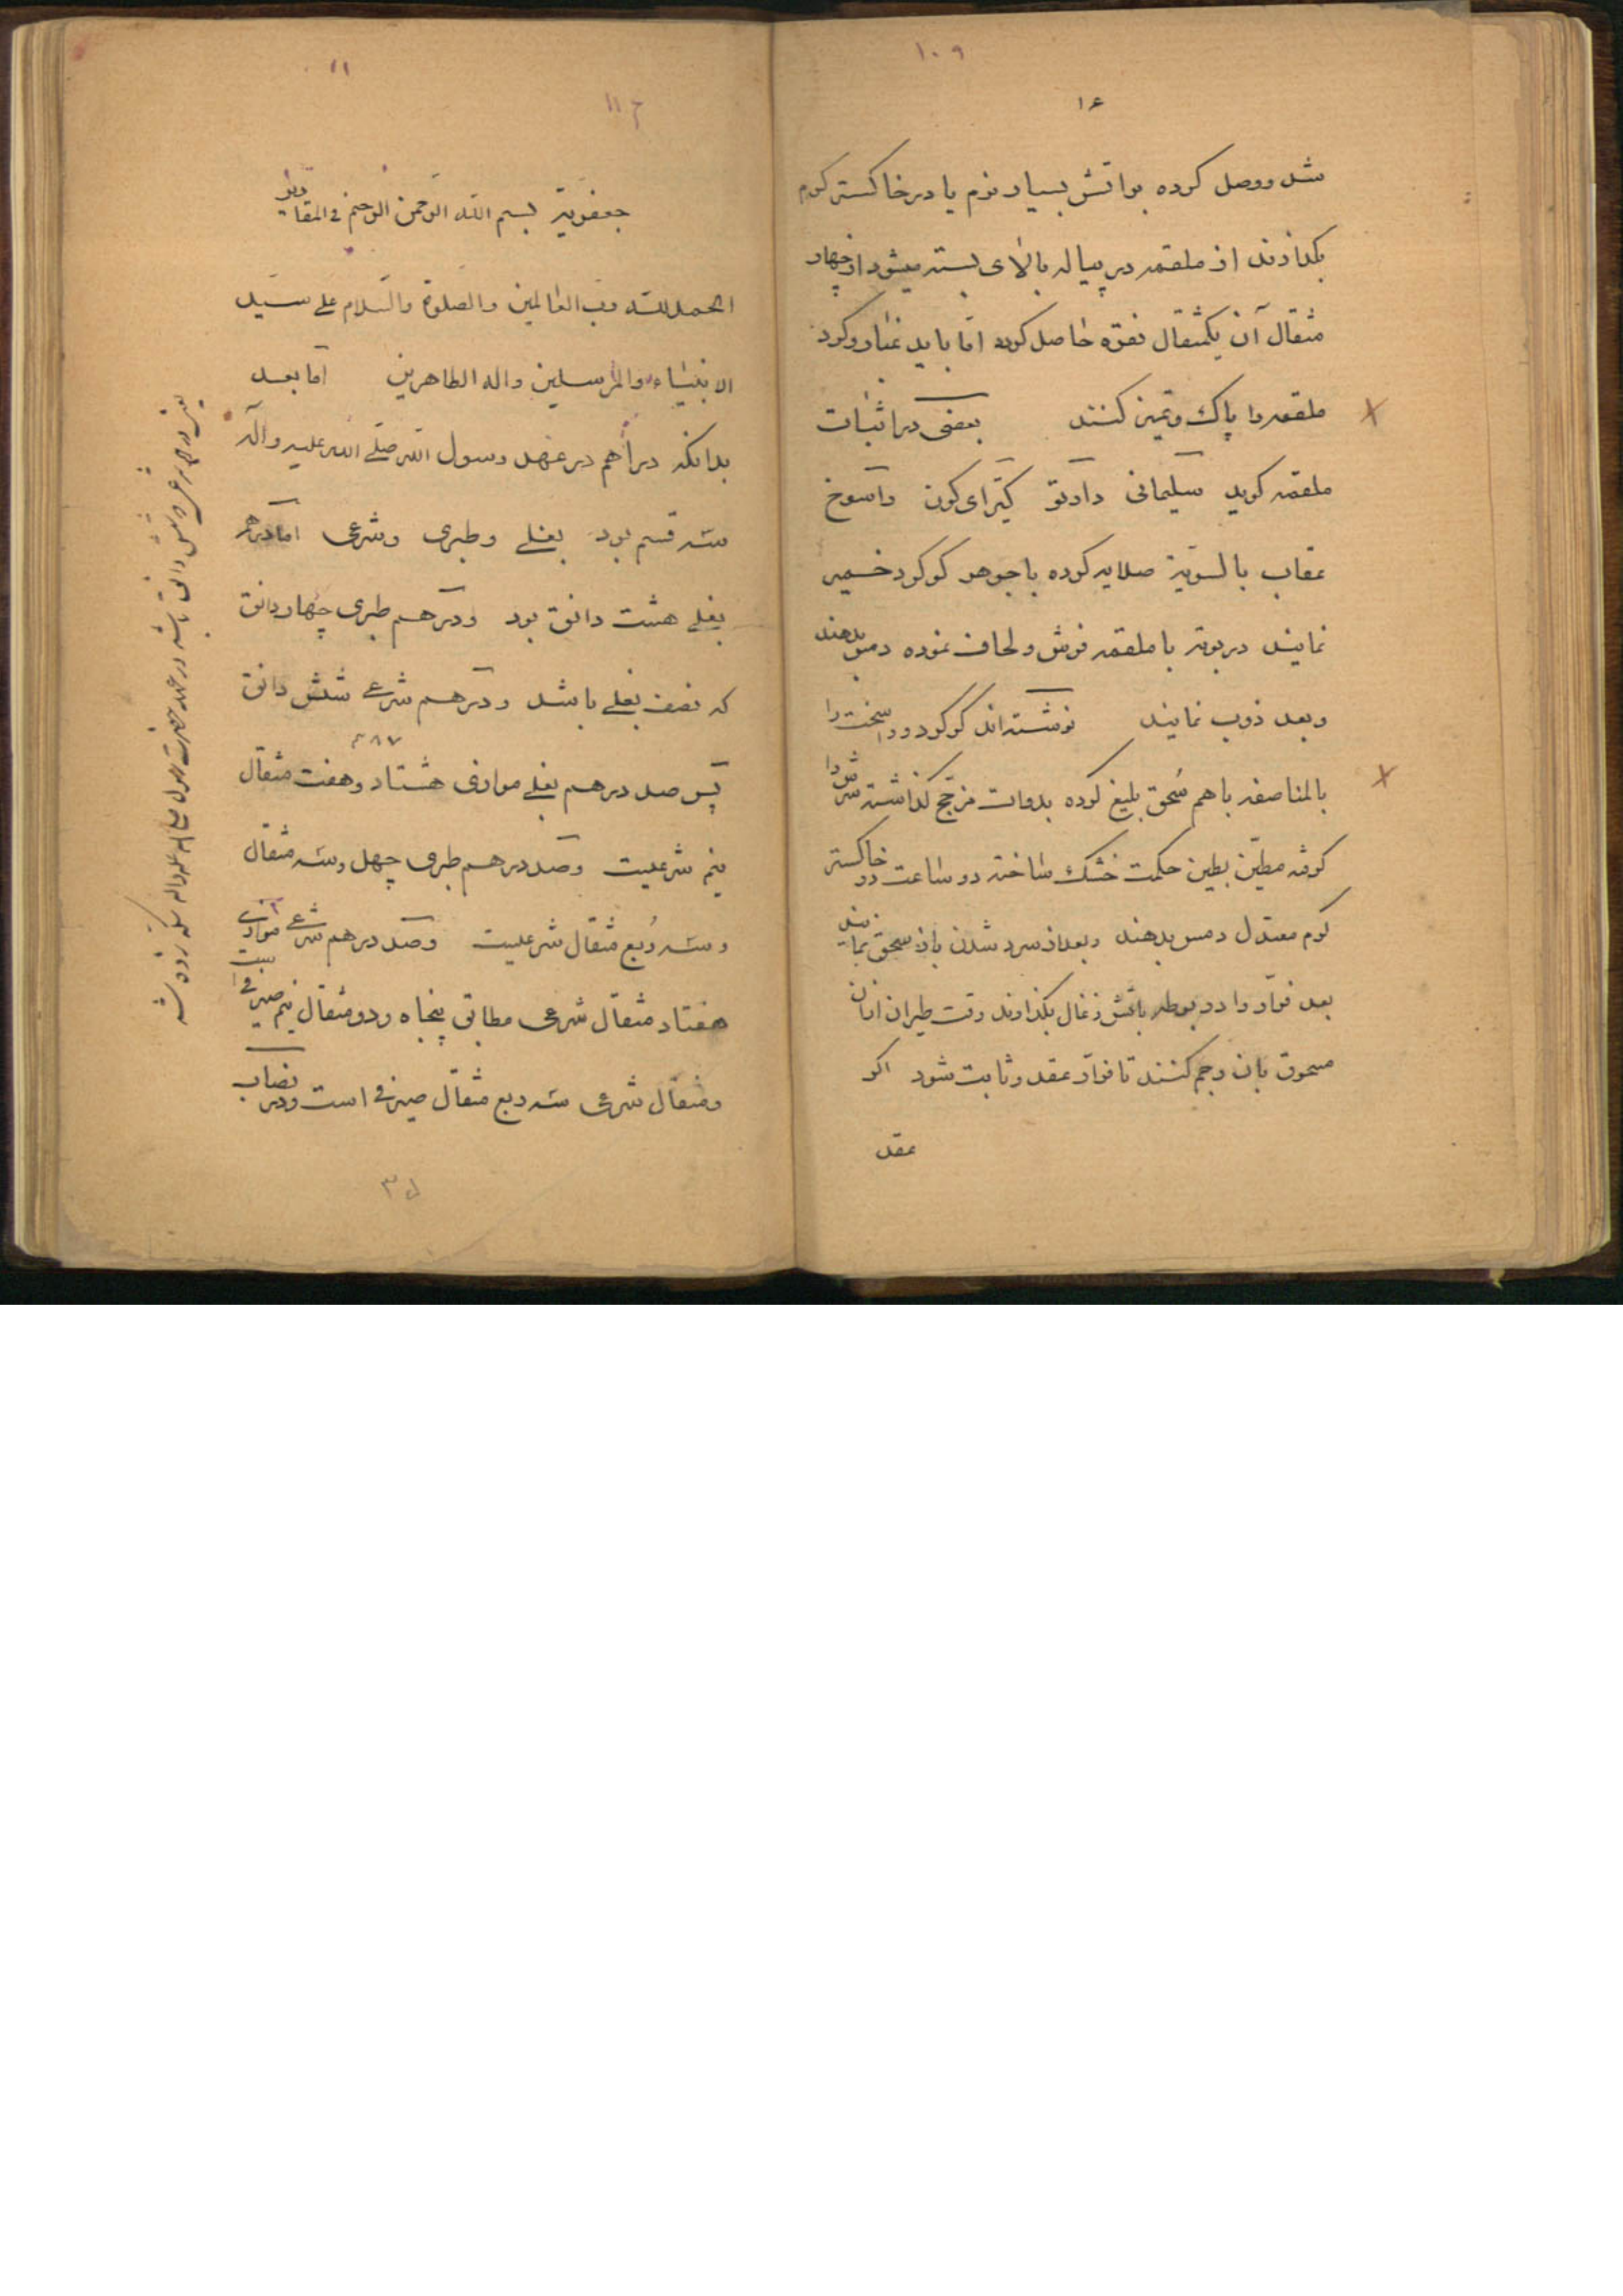 ۱۰۹
۱۶
شد ووصل کرده بر اتش بسیار نرم یا در خاکستر کرم
بکذارند از ملقمه در پیاله بالای بسته میشود از چهار
مثقال آن یکمثقال نقره حاصل کرده اما باید غبار وکرد
ملقمه را پاک وتمیز کنند بعضی در اثبات
ملقمه کوید سلیمانی داد کبرای کون راسوخ
عقاب بالسویة صلایه کرده با جوهر کوکرد خمیر
نمایند در بوته با ملقمه فرش ولحاف نموده دمس بدهند
وبعد ذوب نمایند نوشته اند کوکرد و را
بالمناصفه باهم سحق بلیغ کرده بدوات مزجج کذاشته سرش را
کرفته مطین بطین حکمت خشک ساخته دو ساعت در خاکستر
کرم معتدل دمس بدهند وبعد از سرد شدن باز سحق نمایند
بعد فرار را در بوطه باتش زغال بکذارند وقت طیران ازان
مسحوق بان رجم کنند تا فرار عقد وثابت شود اکر
عقد
۱۱
۱۱۲
جعفریة بسم الله الرحمن الرحیم فی المقادیر
الحمد لله رب العالمین والصلوة والسلام علی سید
الانبیاء والمرسلین واله الطاهرین اما بعد
بدانکه دراهم در عهد رسول الله صلی الله علیه واله
سه قسم بود بغلی وطبری وشرعی اما درهم
بغلی هشت دانق بود ودرهم طبری چهار دانق
که نصف بغلی باشد ودرهم شرعی شش دانق
۸۷
پس صد درهم بغلی موازی هشتاد وهفت مثقال
نیم شرعیست وصد درهم طبری چهل وسه مثقال
وسه ربع مثقال شرعیست وصد درهم شرعی موازی
هفتاد مثقال شرعی مطابق پنجاه ودو مثقال نیم صیرفی است
ومثقال شرعی سه ربع مثقال صیرفی است ودر نصاب
یعنی درهم شرعی که شش دانق باشد در عهد حضرت رسول صلی الله علیه واله سکه زده شد